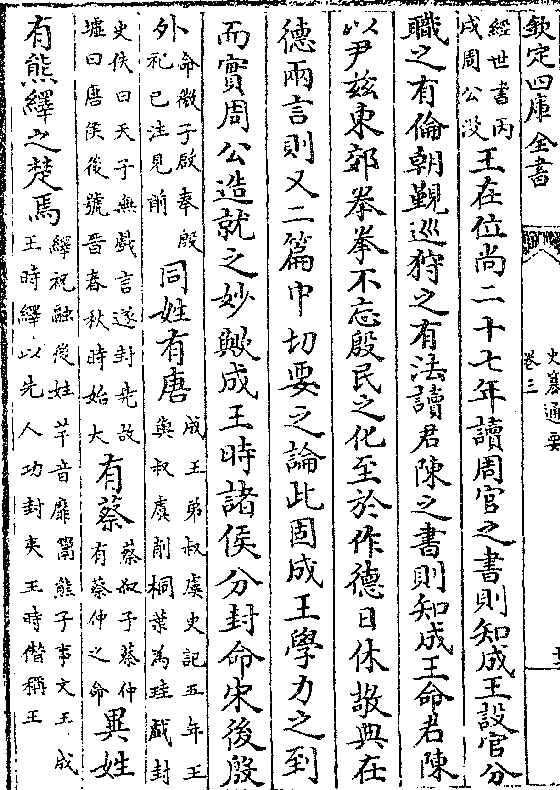 欽定四庫全書
史纂通要
卷三
經世書丙
戌周公沒
王在位尚二十七年讀周官之書則知成王設官分
職之有倫朝覲巡狩之有法讀君陳之書則知成王命君陳
以尹茲東郊拳拳不忘殷民之化至於作德日休敬典在
德兩言則又二篇中切要之論此固成王學力之到
而實周公造就之妙歟成王時諸侯分封命宋後殷
外命微子啟奉殷
祀已注見前
同姓有唐
成王弟叔虞史記五年王
與叔虞削桐葉為珪戲封
史佚曰天子無戲言遂封堯故
墟曰唐侯後號晉春秋時始大
有蔡
蔡叔子蔡仲
有蔡仲之命
異姓
有熊繹之楚焉
繹祝融後姓芊音靡鬻熊子事文王成
王時繹以先人功封夷王時僭稱王